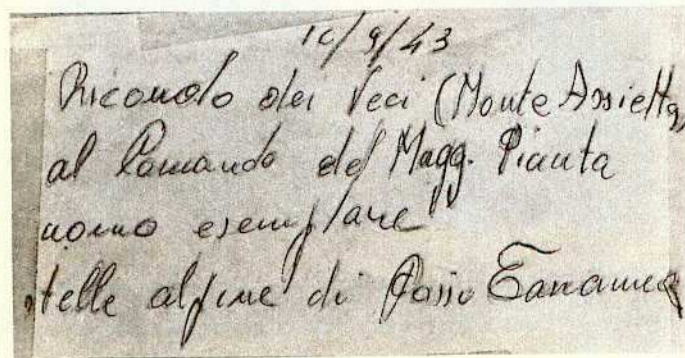 10/9/43
Ricordo dei Veci (Monte Assietta)
al Comando del Magg. Pianta
uomo esemplare
stelle alpine di Passo Tanamea